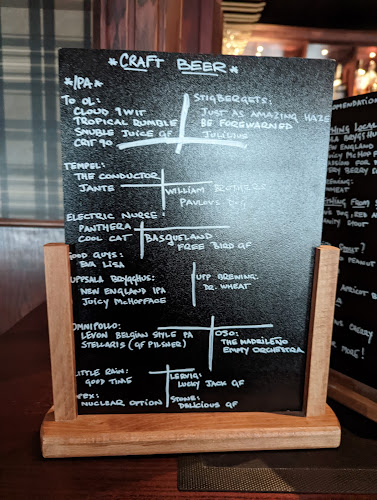 *CRAFT BEER*
*IPA*
TO ØL:
CLOUD 9 WIT
TROPICAL RUMBLE
SMUBLE JUICE GF
CRIT 90
STIGBERGETS:
JUST AS AMAZING HAZE
BE FOREWARNED
JULIUS
TEMPEL:
THE CONDUCTOR
JANTE
WILLIAM BROTHERS
PAVLOVS DOG
ELECTRIC NURSE:
PANTHERA
COOL CAT
BASQUELAND
FREE BIRD GF
GOOD GUYS:
EVA LISA
UPPSALA BRYGGHUS:
NEW ENGLAND IPA
JUICY McHOPFACE
UPP BREWING:
DR. WHEAT
OMNIPOLLO:
LEVON BELGIAN STYLE PA
STELLARIS (GF PILSNER)
OSO:
THE MADRILENO
EMPTY ORCHESTRA
LITTLE RAIN:
GOOD TIME
LERVIG:
LUCKY JACK GF
APEX:
NUCLEAR OPTION
STONE:
DELICIOUS GF
OMENDATION
LOCAL
NEW ENGLAND
JUICY McHOPF
FROM
PEANUT
APRICOT
CHERRY
MORE!